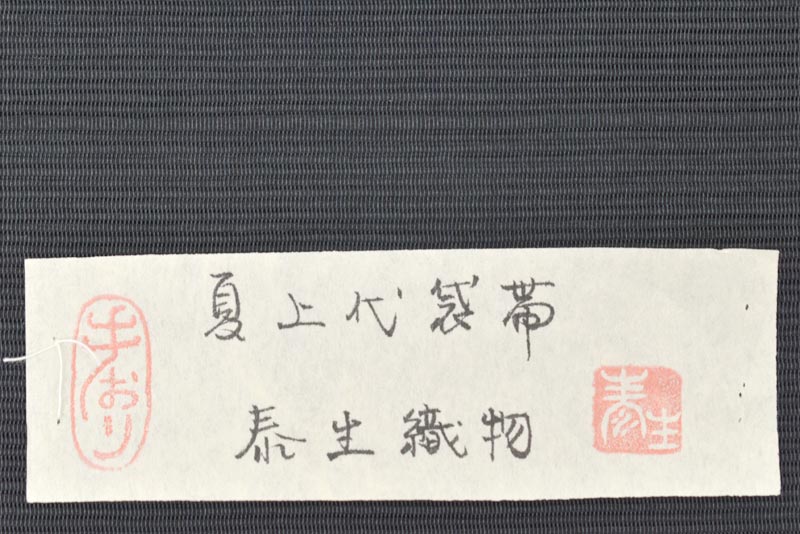 夏上代袋帯
泰生織物
手おり
泰生